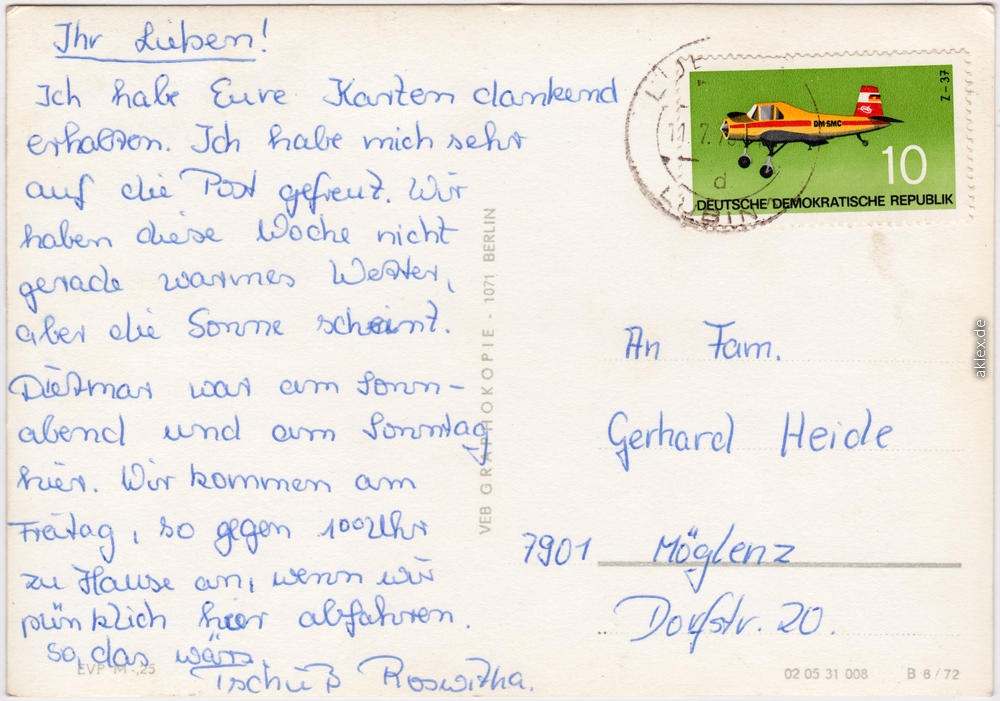 Ihr Lieben!
Ich habe Eure Karten dankend
erhalten. Ich habe mich sehr
auf die Post gefreut. Wir
haben diese Woche nicht
gerade warmes Wetter,
aber die Sonne scheint.
Dietmar war am Sonn-
abend und am Sonntag
hier. Wir kommen am
Freitag, so gegen 100 Uhr
zu Hause an, wenn wir
pünklich hier abfahren.
so, das wärs.
Tschüß Roswitha.
EVP M -,25
VEB GRAPHOKOPIE - 1071 BERLIN
Z-37
DM-SMC
10
DEUTSCHE DEMOKRATISCHE REPUBLIK
d
LUBIN
An Fam.
Gerhard Heide
7901 Möglenz
Dorfstr. 20.
02 05 31 008 B 8/72
aklex.de